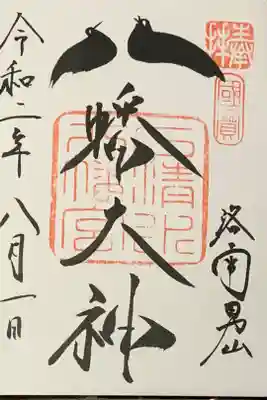 奉拝
國寶
洛南男山
八幡大神
石清水
八幡宮
令和二年八月一日